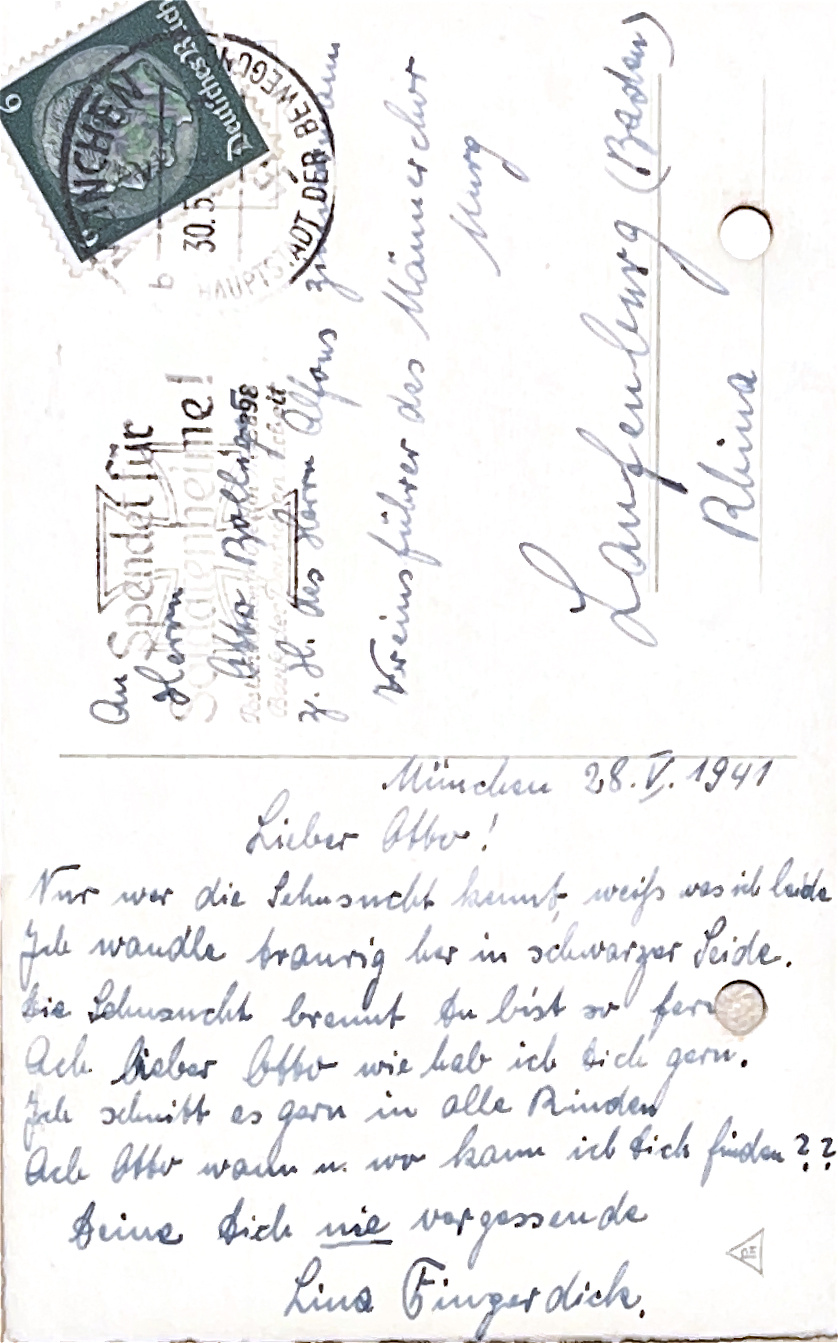 Deutsches Reich
6
MÜNCHEN
30.5.
HAUPTSTADT DER BEWEGUNG
b
Spendet für
An
Herrn
Otto
z. H. des Herrn Alfons
Vereinsführer des Männerchor
Murg
Laufenburg (Baden)
Rhina
München 28. V. 1941
Lieber Otto!
Nur wer die Sehnsucht kennt, weiß was ich leide
Ich wandle traurig her in schwarzer Seide.
Die Sehnsucht brennt Du bist so fern
Ach lieber Otto wie hab ich Dich gern.
Ich schnitt es gern in alle Rinden
Ach Otto wann u. wo kann ich Dich finden??
Deine Dich nie vergessende
Lina Fingerdick.